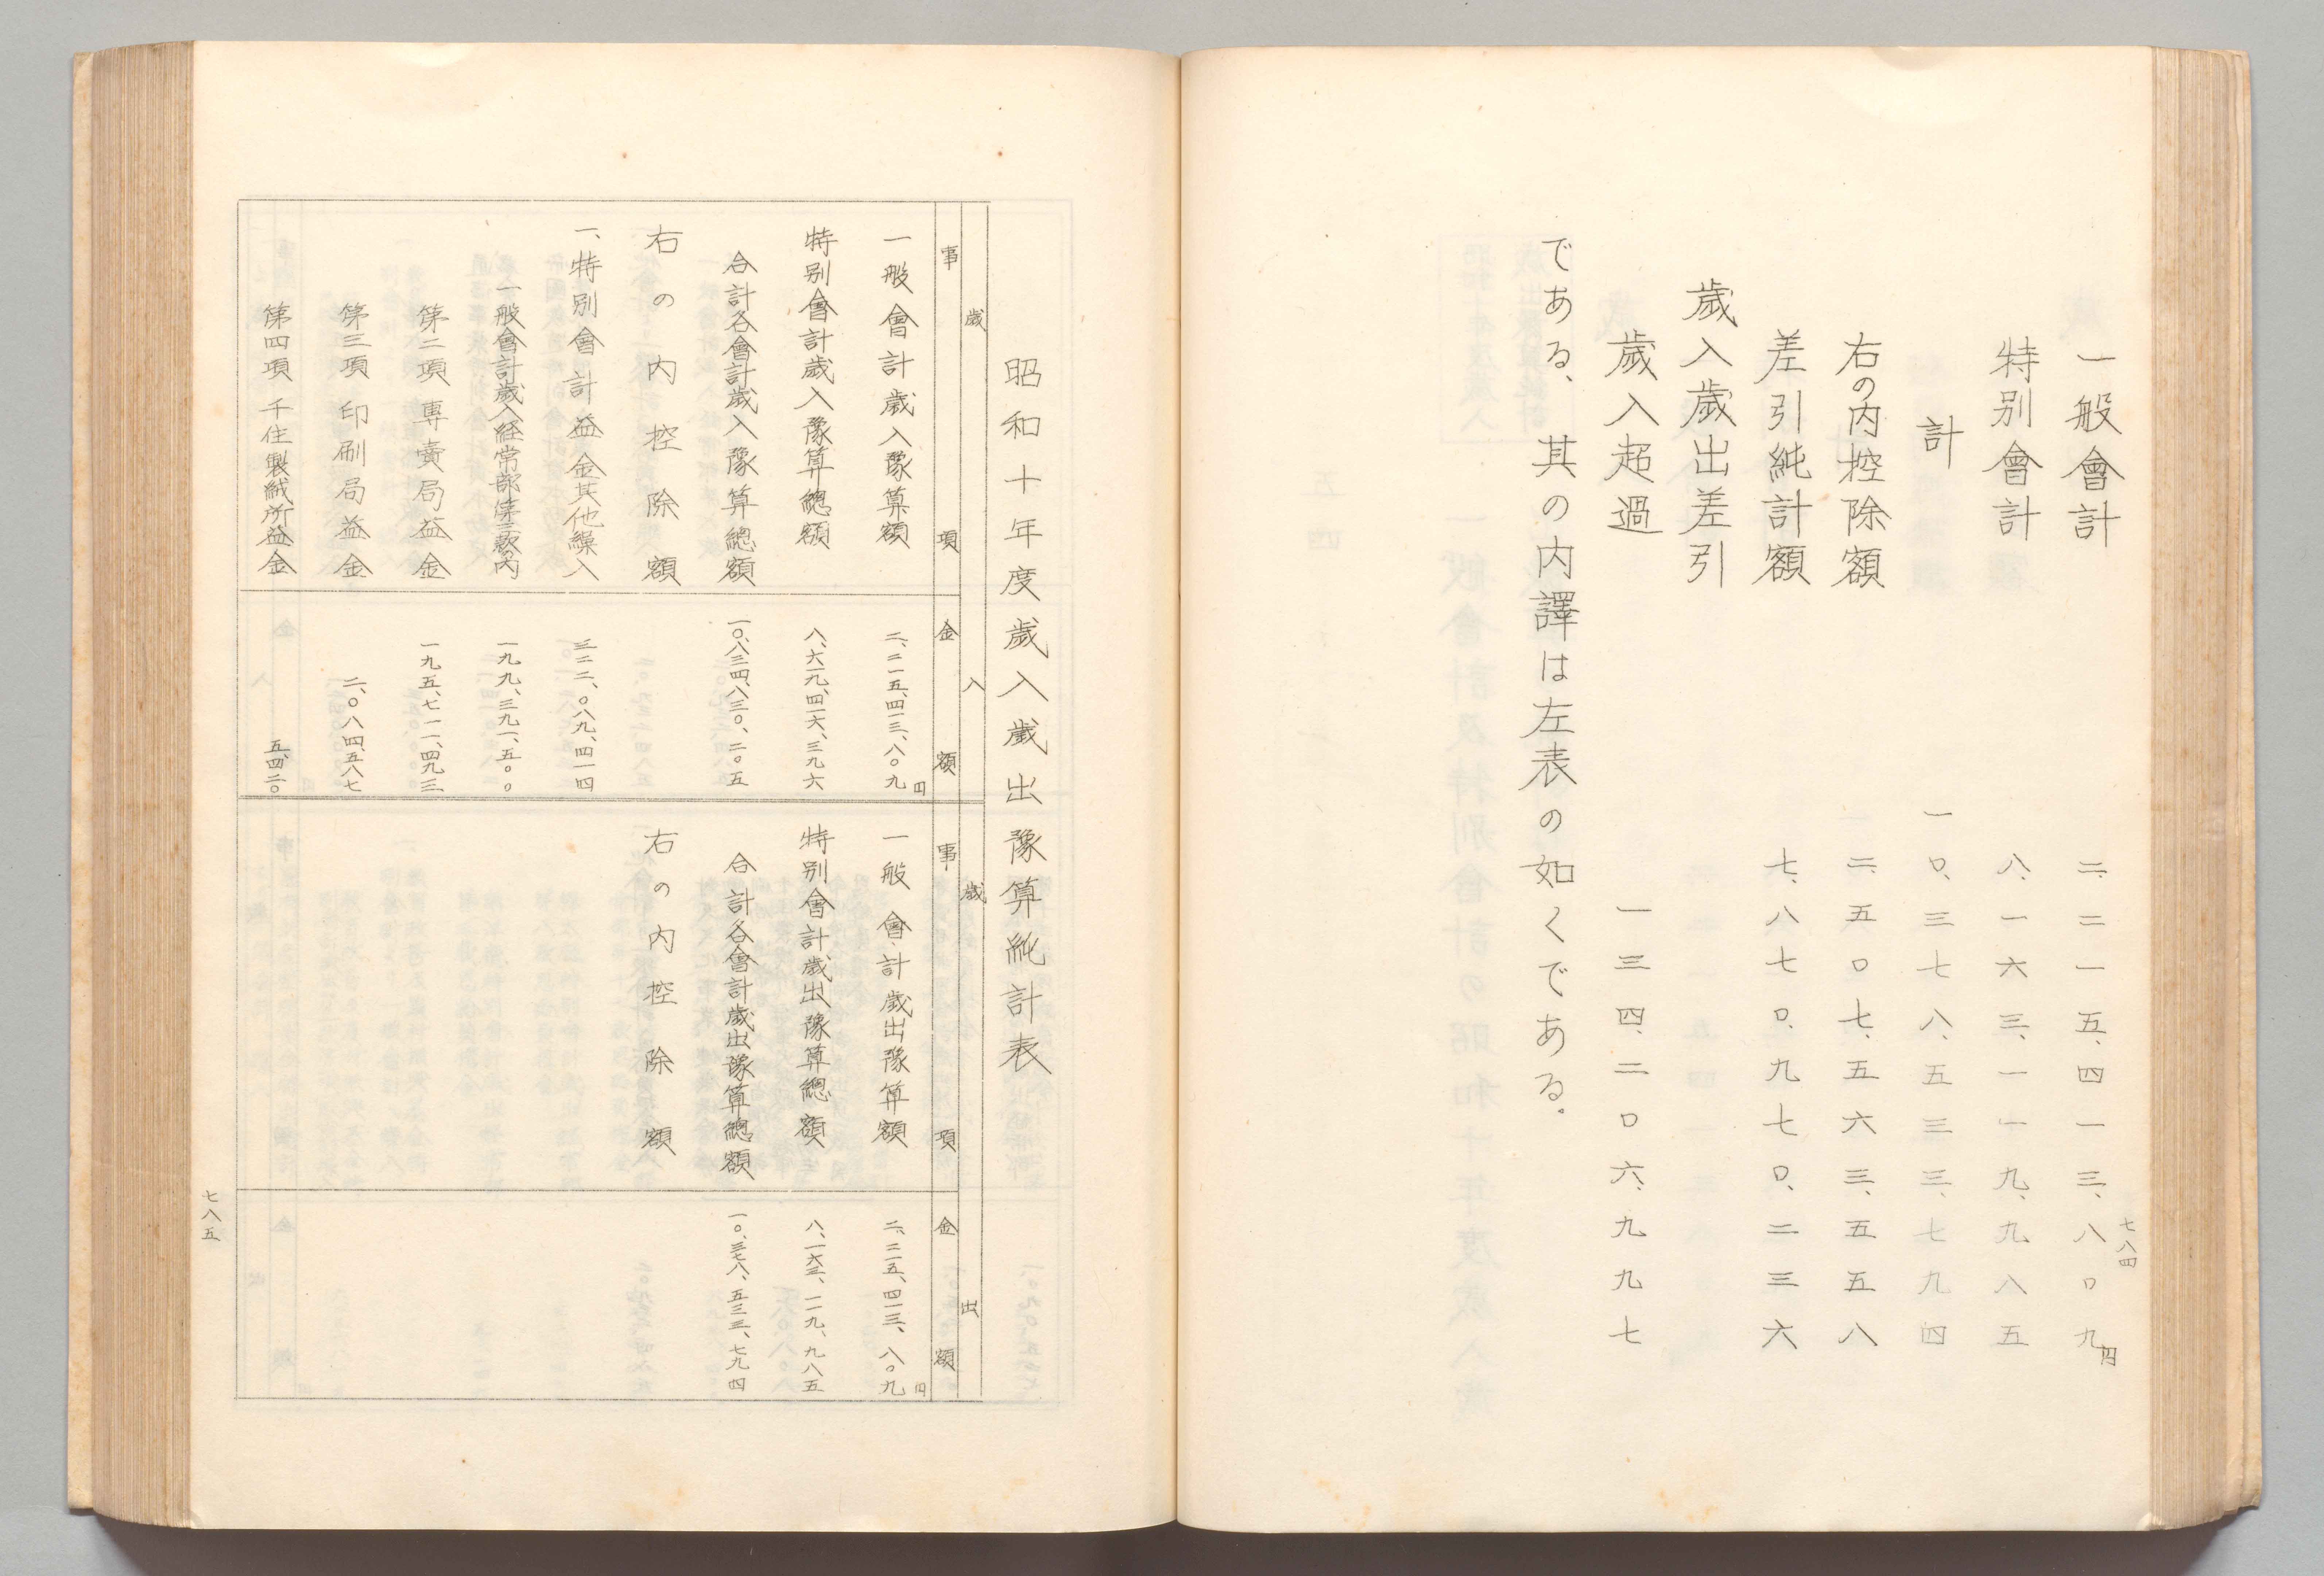 七八四
一般會計 二、二一五、四一三、八〇九円
特別會計 八、一六三、一一九、九八五
計 一〇、三七八、五三三、七九四
右の内控除額 二、五〇七、五六三、五五八
差引純計額 七、八七〇、九七〇、二三六
歳入歳出差引
歳入超過 一三四、二〇六、九九七
である、其の内譯は左表の如くである。
昭和十年度歳入歳出豫算純計表
歳入
事項 金額
一般會計歳入豫算額 二、二一五、四一三、八〇九円
特別會計歳入豫算總額 八、六一九、四一六、三九六
合計各會計歳入豫算總額 一〇、八三四、八三〇、二〇五
右の内控除額
一、特別會計益金其他繰入 三二二、〇八九、四一四
一般會計歳入経常部第三款の内 一九九、三九一、五〇〇
第二項 專賣局益金 一九五、七一一、四九三
第三項 印刷局益金 二、〇八四、五八七
第四項 千住製絨所益金 五、四二〇
歳出
事項 金額
一般會計歳出豫算額 二、二一五、四一三、八〇九円
特別會計歳出豫算總額 八、一六三、一一九、九八五
合計各會計歳出豫算總額 一〇、三七八、五三三、七九四
右の内控除額
七八五